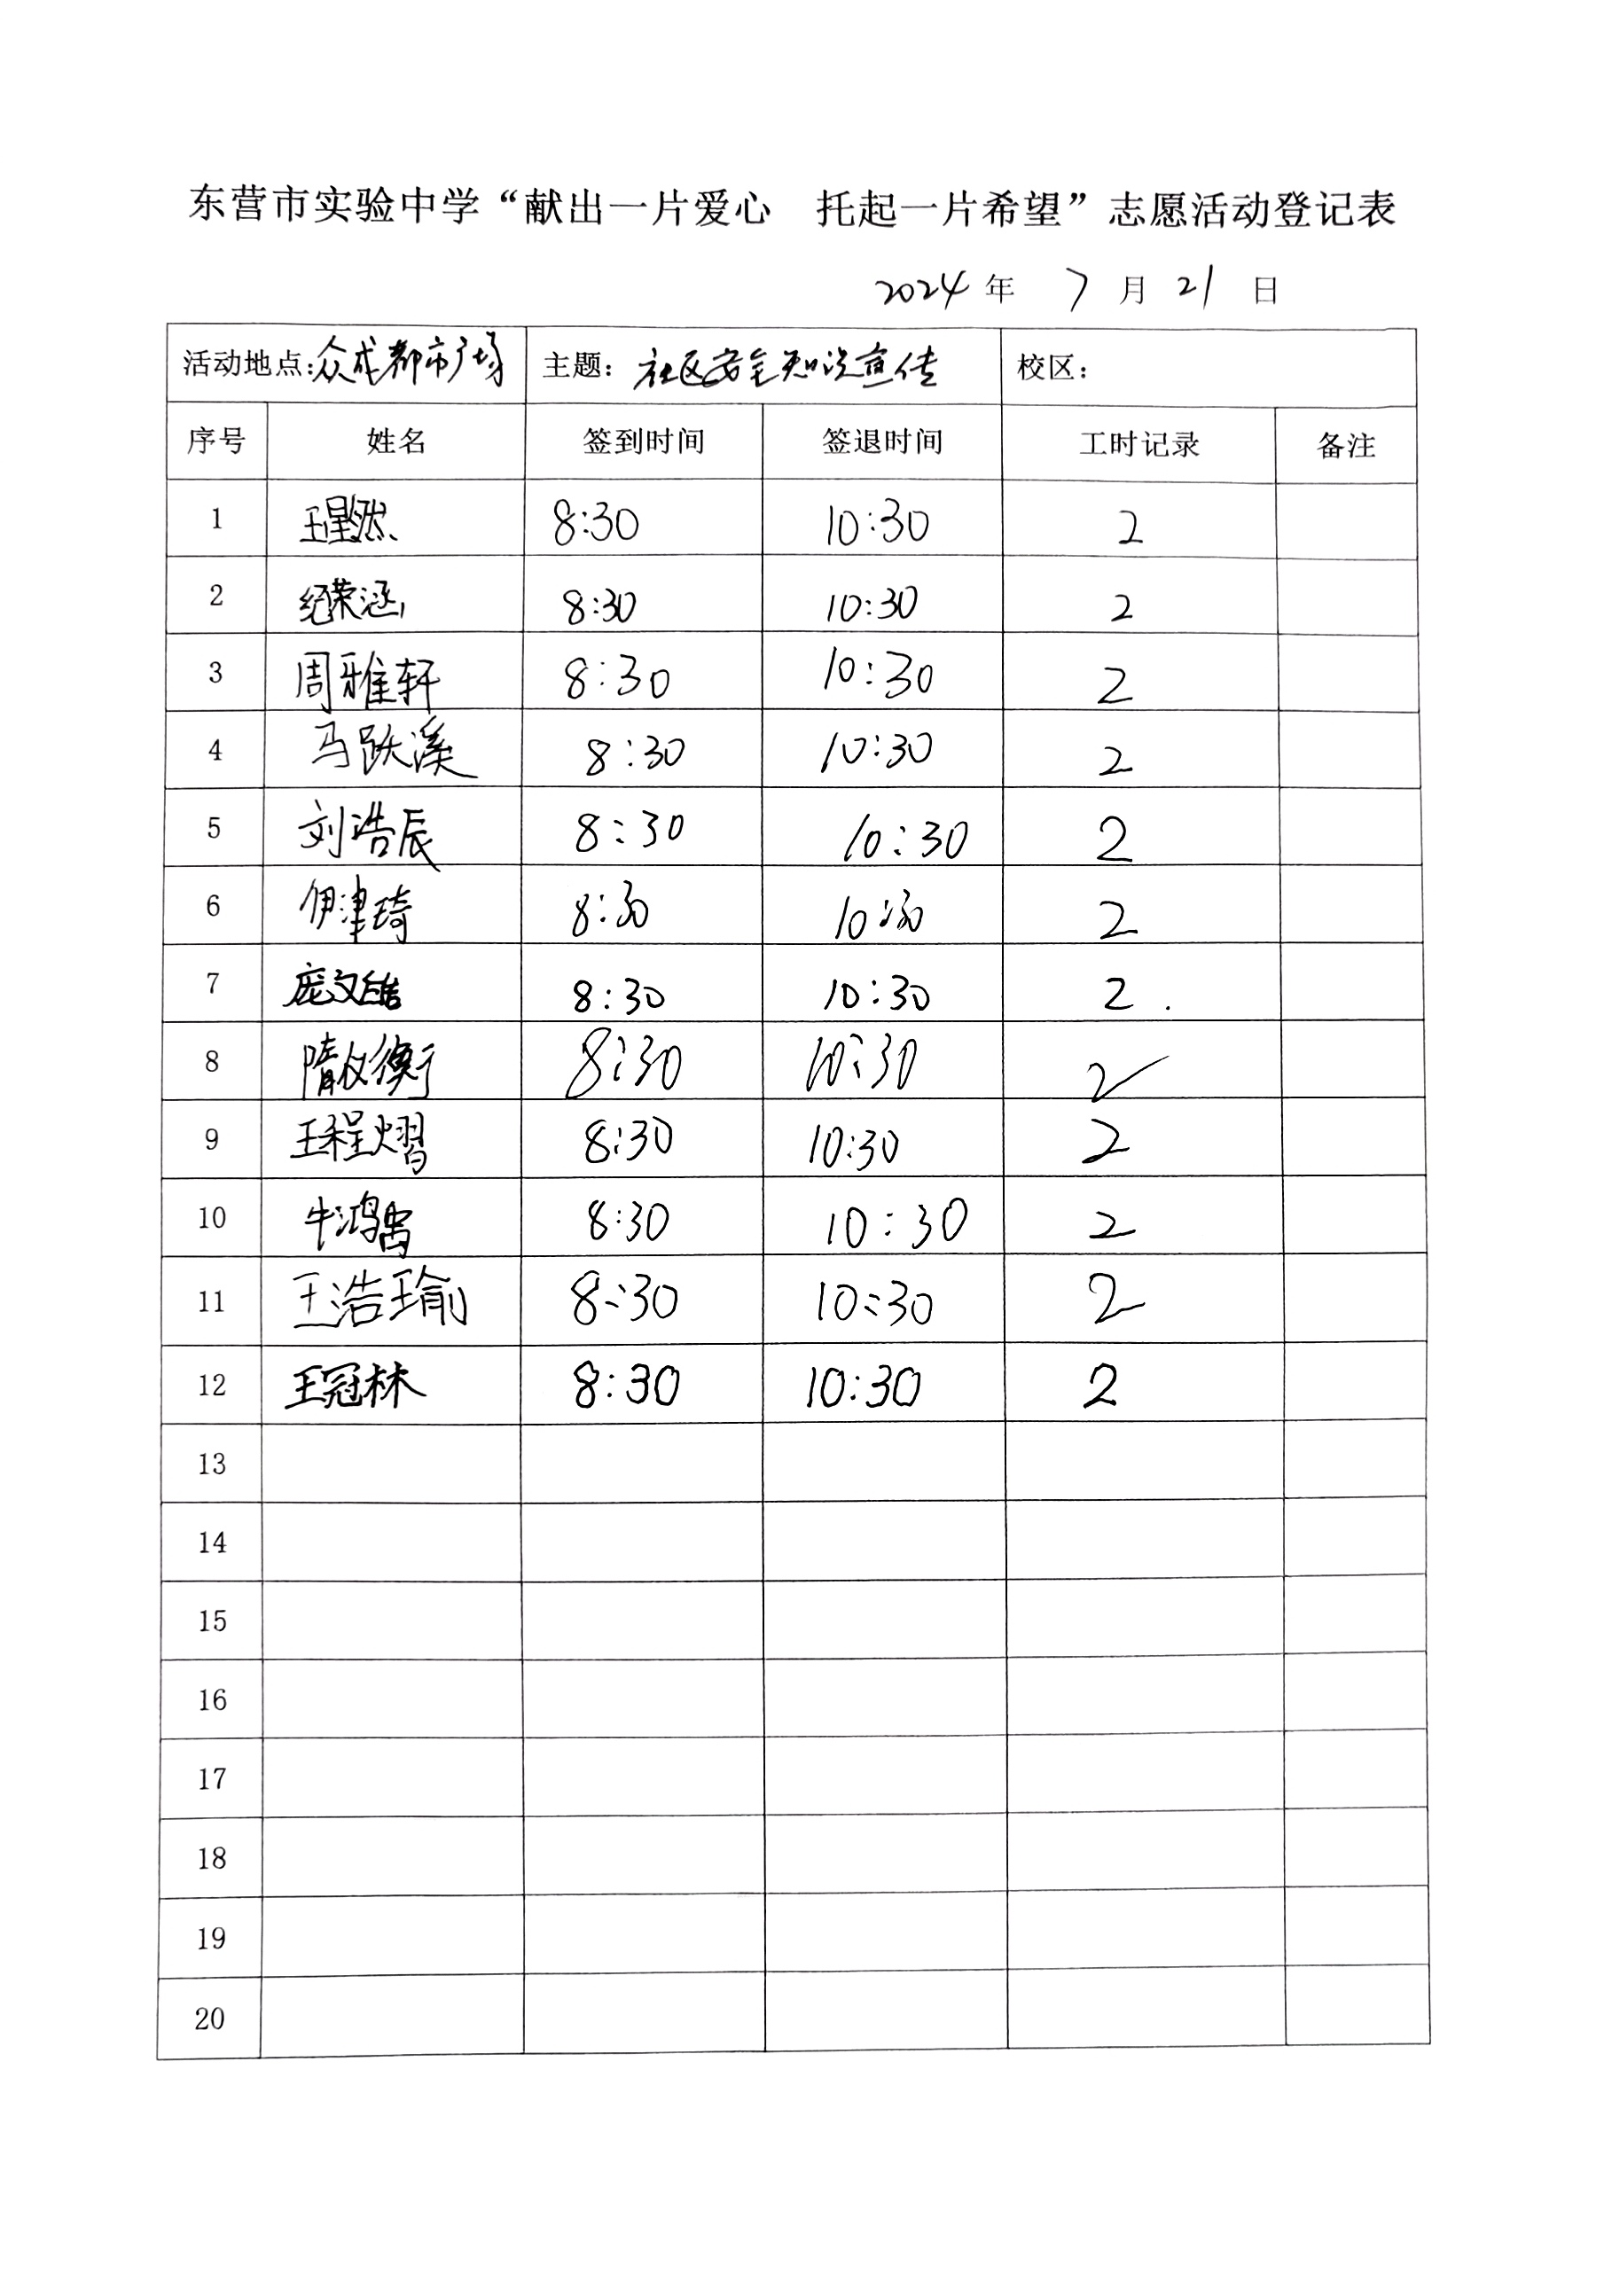 东营市实验中学“献出一片爱心 托起一片希望”志愿活动登记表
2024 年 7 月 21 日
活动地点：众成都市广场 主题：社区安全知识宣传 校区：
序号 姓名 签到时间 签退时间 工时记录 备注
1 王星然 8:30 10:30 2
2 纪荣涵 8:30 10:30 2
3 周雅轩 8:30 10:30 2
4 马跃溪 8:30 10:30 2
5 刘浩辰 8:30 10:30 2
6 伊津琦 8:30 10:30 2
7 庞文皓 8:30 10:30 2
8 隋仪衡 8:30 10:30 2
9 王程熠 8:30 10:30 2
10 牛鸿禹 8:30 10:30 2
11 王浩瑜 8:30 10:30 2
12 王冠林 8:30 10:30 2
13
14
15
16
17
18
19
20